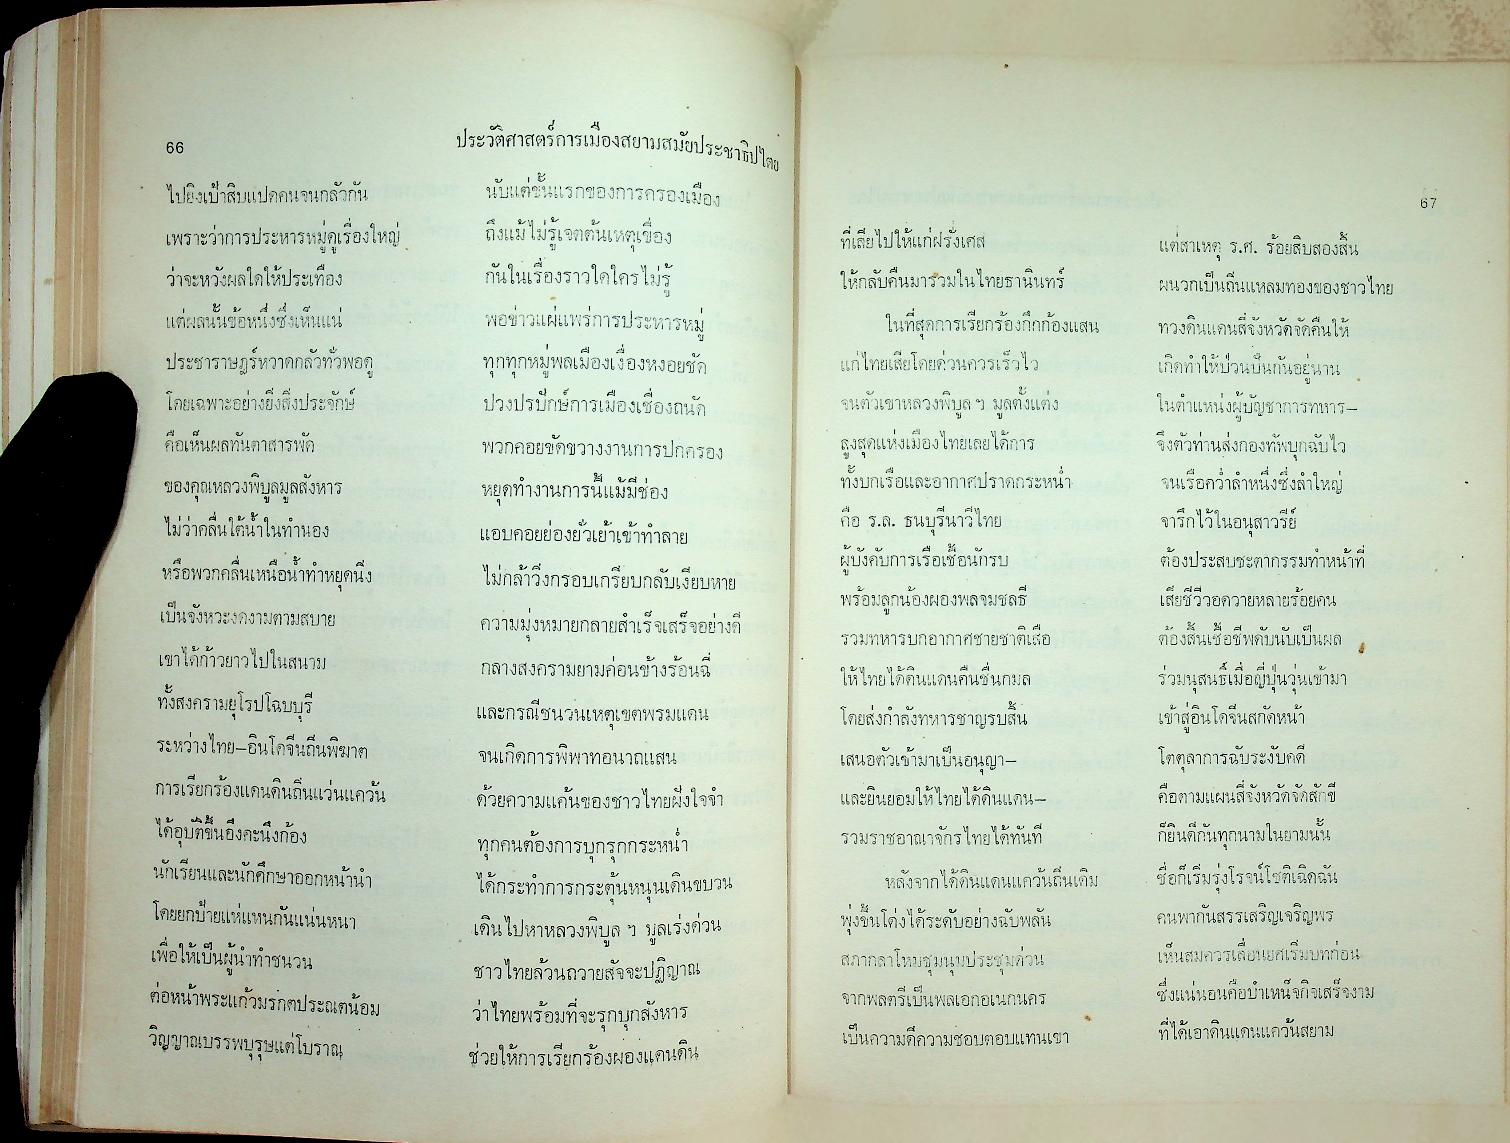 66
ประวัติศาสตร์การเมืองสยามสมัยประชาธิปไตย
ไปยิงเป้าสิบแปดคนจนกลัวกัน นับแต่ชั้นแรกของการครองเมือง
เพราะว่าการประหารหมู่ดูเรื่องใหญ่ ถึงแม้ไม่รู้เจตต้นเหตุเขื่อง
ว่าจะหวังผลใดให้ประเทือง กันในเรื่องราวใดใครไม่รู้
แต่ผลนั้นข้อหนึ่งซึ่งเห็นแน่ พอข่าวแผ่แพร่การประหารหมู่
ประชาราษฎร์หวาดกลัวทั่วพอดู ทุกทุกหมู่พลเมืองเงื่องหงอยชัด
โดยเฉพาะอย่างยิ่งสิ่งประจักษ์ ปวงปรปักษ์การเมืองเชื่องถนัด
คือเห็นผลทันตาสารพัด พวกคอยขัดขวางงานการปกครอง
ของคุณหลวงพิบูลมูลสังหาร หยุดทำงานการนี้แม้มีช่อง
ไม่ว่าคลื่นใต้น้ำในทำนอง แอบคอยย่องยั่วเย้าเข้าทำลาย
หรือพวกคลื่นเหนือน้ำทำหยุดนิ่ง ไม่กล้าวิ่งกรอบเกรียบกลับเงียบหาย
เป็นจังหวะงดงามตามสบาย ความมุ่งหมายกลายสำเร็จเสร็จอย่างดี
เขาได้ก้าวยาวไปในสนาม กลางสงครามยามค่อนข้างร้อนฉี่
ทั้งสงครามยุโรปโฉบบุรี และกรณีชนวนเหตุเขตพรมแดน
ระหว่างไทย–อินโดจีนถิ่นพิฆาต จนเกิดการพิพาทอนาถแสน
การเรียกร้องแดนดินถิ่นแว่นแคว้น ด้วยความแค้นของชาวไทยฝังใจจำ
ได้อุบัติขึ้นอึงคะนึงก้อง ทุกคนต้องการบุกรุกกระหน่ำ
นักเรียนและนักศึกษาออกหน้านำ ได้กระทำการกระตุ้นหนุนเดินขบวน
โดยยกป้ายแห่แหนกันแน่นหนา เดินไปหาหลวงพิบูล ฯ มูลเร่งด่วน
เพื่อให้เป็นผู้นำทำชนวน ชาวไทยล้วนถวายสัจจะปฏิญาณ
ต่อหน้าพระแก้วมรกตประณตน้อม ว่าไทยพร้อมที่จะรุกบุกสังหาร
วิญญาณบรรพบุรุษแต่โบราณ ช่วยให้การเรียกร้องผองแดนดิน
67
ที่เสียไปให้แก่ฝรั่งเศส แต่สาเหตุ ร.ศ. ร้อยสิบสองสิ้น
ให้กลับคืนมารวมในไทยธานินทร์ ผนวกเป็นถิ่นแหลมทองของชาวไทย
ในที่สุดการเรียกร้องกึกก้องแสน ทวงดินแดนสี่จังหวัดจัดคืนให้
แก่ไทยเสียโดยด่วนควรเร็วไว เกิดทำให้ป่วนปั่นกันอยู่นาน
จนตัวเขาหลวงพิบูล ฯ มูลตั้งแต่ง ในตำแหน่งผู้บัญชาการทหาร–
สูงสุดแห่งเมืองไทยเลยได้การ จึงตัวท่านส่งกองทัพบุกฉับไว
ทั้งบกเรือและอากาศปราดกระหน่ำ จนเรือคว่ำลำหนึ่งซึ่งลำใหญ่
คือ ร.ล. ธนบุรีนาวีไทย จารึกไว้ในอนุสาวรีย์
ผู้บังคับการเรือเชื้อนักรบ ต้องประสบชะตากรรมทำหน้าที่
พร้อมลูกน้องผองพลจมชลธี เสียชีวีวอดวายหลายร้อยคน
รวมทหารบกอากาศชายชาติเสือ ต้องสิ้นเชื้อชีพดับนับเป็นผล
ให้ไทยได้ดินแดนคืนชื่นกมล ร่วมนุสนธิ์เมื่อญี่ปุ่นวุ่นเข้ามา
โดยส่งกำลังทหารชาญรบสิ้น เข้าสู่อินโดจีนสกัดหน้า
เสนอตัวเข้ามาเป็นอนุญา– โตตุลาการฉับระงับคดี
และยินยอมให้ไทยได้ดินแดน– คือตามแผนสี่จังหวัดจัดสักขี
รวมราชอาณาจักรไทยได้ทันที ก็ยินดีกันทุกนามในยามนั้น
หลังจากได้ดินแดนแคว้นถิ่นเดิม ชื่อก็เริ่มรุ่งโรจน์โชติเฉิดฉัน
พุ่งขึ้นโด่งได้ระดับอย่างฉับพลัน คนพากันสรรเสริญเจริญพร
สภากลาโหมชุมนุมประชุมด่วน เห็นสมควรเลื่อนยศเริ่มบทก่อน
จากพลตรีเป็นพลเอกอเนกนคร ซึ่งแน่นอนคือบำเหน็จกิจเสร็จงาม
เป็นความดีความชอบตอบแทนเขา ที่ได้เอาดินแดนแคว้นสยาม